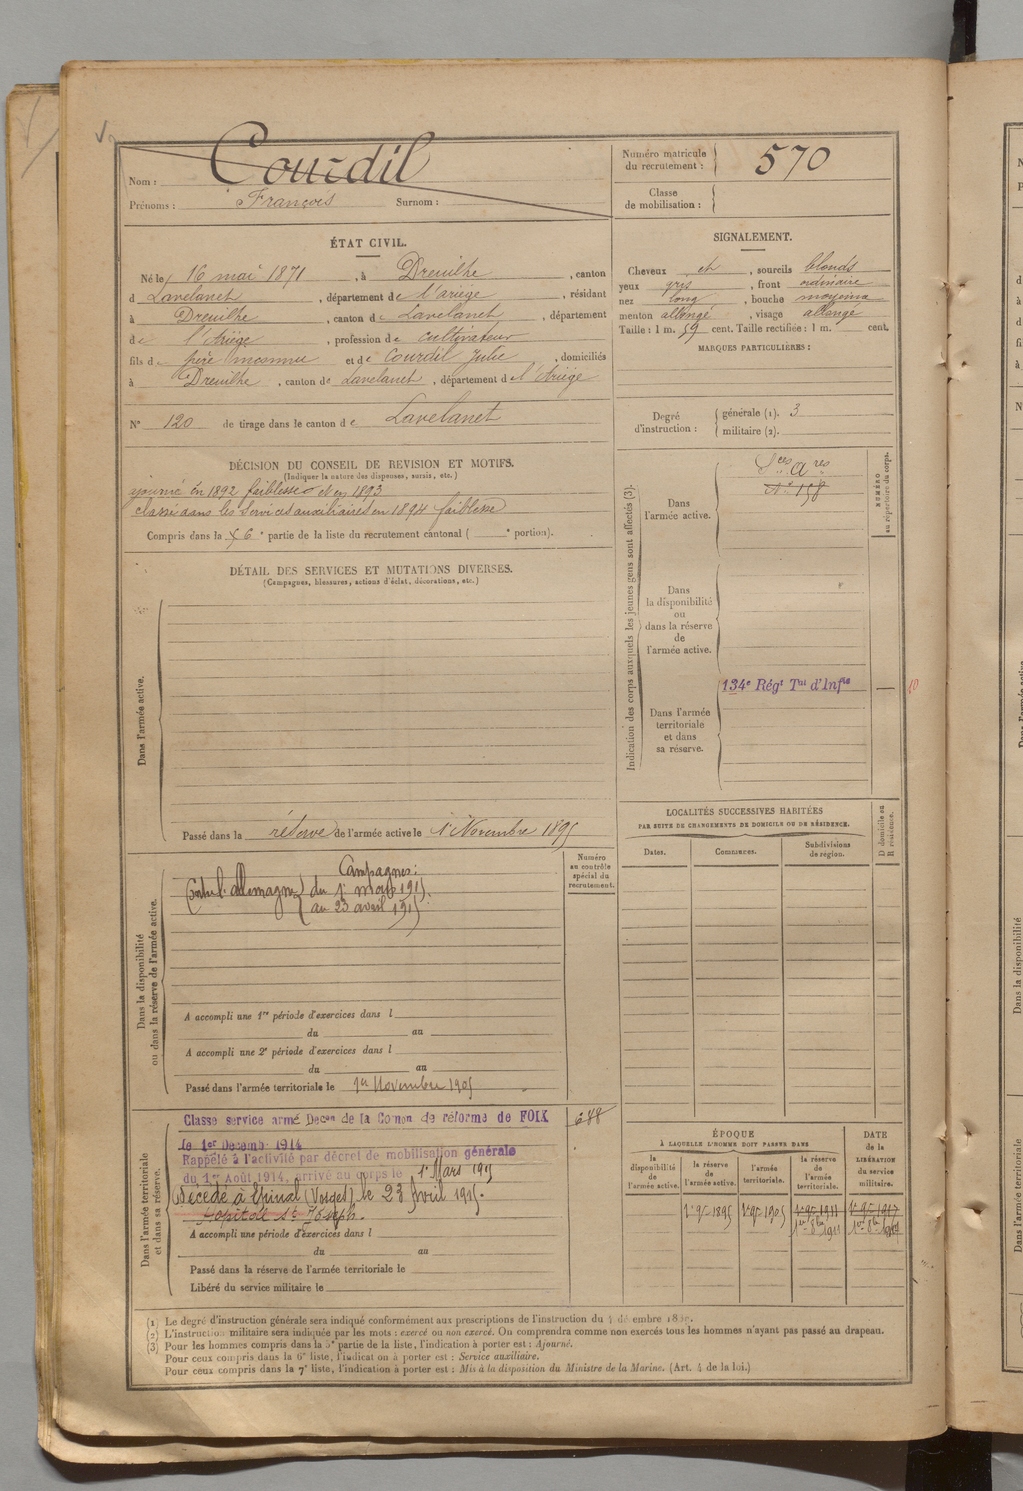 Nom : Courdil
Prénoms : François Surnom :
Numéro matricule du recrutement : 570
Classe de mobilisation :
ÉTAT CIVIL.
Né le 16 mai 1871, à Dreuilhe, canton
d Lavelanet, département de l'ariége, résidant
à Dreuilhe, canton de Lavelanet, département
de l'Ariège, profession de cultivateur
fils de père inconnu et de Courdil Julie, domiciliés
à Dreuilhe, canton de Lavelanet, département de l'Ariége
N° 120 de tirage dans le canton de Lavelanet
SIGNALEMENT.
Cheveux et, sourcils blonds
yeux gris, front ordinaire
nez long, bouche moyenne
menton allongé, visage allongé
Taille : 1 m. 59 cent. Taille rectifiée : 1 m. cent.
MARQUES PARTICULIÈRES :
Degré d'instruction : générale (1). 3
militaire (2).
DÉCISION DU CONSEIL DE REVISION ET MOTIFS.
(Indiquer la nature des dispenses, sursis, etc.)
ajourné en 1892 faiblesse et en 1893
classé dans les Services auxiliaires en 1894 faiblesse
Compris dans la 6e partie de la liste du recrutement cantonal ( e portion).
DÉTAIL DES SERVICES ET MUTATIONS DIVERSES.
(Campagnes, blessures, actions d'éclat, décorations, etc.)
Dans l'armée active.
Passé dans la réserve de l'armée active le 1 Novembre 1895
Indication des corps auxquels les jeunes gens sont affectés (3).
NUMÉRO au répertoire du corps.
Dans l'armée active.
Sces Ares
N° 158
Dans la disponibilité ou dans la réserve de l'armée active.
134e Régt Tal d'Infie
10
Dans l'armée territoriale et dans sa réserve.
LOCALITÉS SUCCESSIVES HABITÉES
PAR SUITE DE CHANGEMENTS DE DOMICILE OU DE RÉSIDENCE.
Dates. Communes. Subdivisions de région. D domicile ou R résidence.
Numéro au contrôle spécial du recrutement.
Dans la disponibilité ou dans la réserve de l'armée active.
Campagnes :
Contre l'allemagne du 1 mars 1915
au 23 avril 1915
A accompli une 1re période d'exercices dans l
du au
A accompli une 2e période d'exercices dans l
du au
Passé dans l'armée territoriale le 1er Novembre 1905
Dans l'armée territoriale et dans sa réserve.
Classé service armé Decon de la Comon de réforme de FOIX 688
le 1er Decemb 1914
Rappelé à l'activité par décret de mobilisation générale
du 1er Août 1914, arrivé au corps le 1er Mars 1915
Décédé à Epinal (Vosges) le 23 Avril 1915.
Hopital St Joseph.
A accompli une période d'exercices dans l
du au
Passé dans la réserve de l'armée territoriale le
Libéré du service militaire le
ÉPOQUE
À LAQUELLE L'HOMME DOIT PASSER DANS
la disponibilité de l'armée active. la réserve de l'armée active. l'armée territoriale. la réserve de l'armée territoriale.
DATE de la LIBÉRATION du service militaire.
1 9bre 1895 1 9bre 1905 1 9bre 1911 1 9bre 1917
(1) Le degré d'instruction générale sera indiqué conformément aux prescriptions de l'instruction du 4 décembre
(2) L'instruction militaire sera indiquée par les mots : exercé ou non exercé. On comprendra comme non exercés tous les hommes n'ayant pas passé au drapeau.
(3) Pour les hommes compris dans la 5e partie de la liste, l'indication à porter est : Ajourné.
Pour ceux compris dans la 6e liste, l'indication à porter est : Service auxiliaire.
Pour ceux compris dans la 7e liste, l'indication à porter est : Mis à la disposition du Ministre de la Marine. (Art. 4 de la loi.)